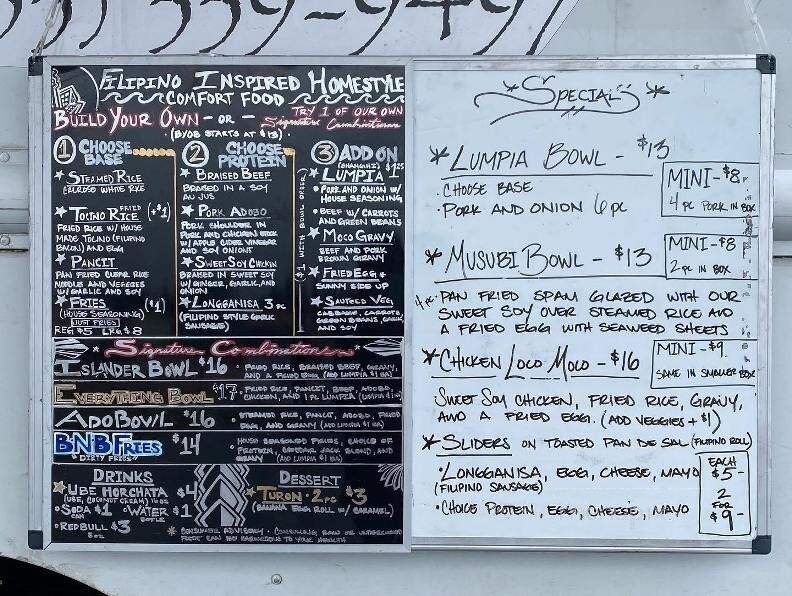 339-9497
FILIPINO INSPIRED HOMESTYLE
COMFORT FOOD
BUILD YOUR OWN - OR - TRY 1 OF OUR OWN
Signature Combinations
(BYOB STARTS AT $13)
1 CHOOSE BASE
STEAMED RICE
CALROSE WHITE RICE
TOCINO FRIED RICE (+$1)
FRIED RICE W/ HOUSE
MADE TOCINO (FILIPINO
BACON) AND EGG
PANCIT
PAN FRIED CLEAR RICE
NOODLE AND VEGGIES
W/ GARLIC AND SOY
FRIES ($1)
(HOUSE SEASONING)
JUST FRIES
REG $5 LRG $8
2 CHOOSE PROTEIN
BRAISED BEEF
BRAISED IN A SOY
AU JUS
PORK ADOBO
PORK SHOULDER IN
W/ APPLE CIDER VINEGAR
AND SOY
SWEET SOY CHICKEN
BRAISED IN SWEET SOY
W/ GINGER, GARLIC, AND
ONION
LONGGANISA 3 PC
(FILIPINO STYLE GARLIC
SAUSAGE)
3 ADD ON
(SHANGHAI)
LUMPIA $1.25
PORK AND ONION W/
HOUSE SEASONING
BEEF W/ CARROTS
AND GREEN BEANS
MOCO GRAVY
BEEF AND PORK
BROWN GRAVY
FRIED EGG
SUNNY SIDE UP
SAUTEED VEG
CABBAGE, CARROTS,
GREEN BEANS, GARLIC
AND SOY
$1 WITH BOWL ORDER
Signature Combinations
ISLANDER BOWL $16 - FRIED RICE, BRAISED BEEF, GRAVY,
AND A FRIED EGG (ADD LUMPIA $1 EA)
EVERYTHING BOWL $17 FRIED RICE, PANCIT, BEEF, ADOBO,
CHICKEN, AND 1 PC LUMPIA (LUMPIA $1 EA)
ADOBOWL $16 - STEAMED RICE, PANCIT, ADOBO, FRIED
EGG, AND GRAVY (ADD LUMPIA $1 EA)
BNB FRIES $14 - HOUSE SEASONED FRIES, CHOICE OF
"DIRTY FRIES" PROTEIN, CHEDDAR JACK BLEND, AND
GRAVY (ADD LUMPIA $1 EA)
DRINKS
UBE HORCHATA $4
(UBE, COCONUT CREAM) 16 OZ
SODA $1 WATER $1
BOTTLE
REDBULL $3
8 OZ
DESSERT
TURON - 2 PC $3
(BANANA EGG ROLL W/ CARAMEL)
* CONSUMER ADVISORY - CONSUMING RAW OR UNDERCOOKED
FOOD CAN BE HAZARDOUS TO YOUR HEALTH
* SPECIALS *
* LUMPIA BOWL - $13
· CHOOSE BASE
· PORK AND ONION 6 PC
MINI - $8
4 PC PORK IN BOX
* MUSUBI BOWL - $13
MINI - $8
2 PC IN BOX
4 PC PAN FRIED SPAM GLAZED WITH OUR
SWEET SOY OVER STEAMED RICE AND
A FRIED EGG WITH SEAWEED SHEETS
* CHICKEN LOCO MOCO - $16
MINI - $9
SAME IN SMALLER BOX
SWEET SOY CHICKEN, FRIED RICE, GRAVY,
AND A FRIED EGG. (ADD VEGGIES + $1)
* SLIDERS ON TOASTED PAN DE SAL (FILIPINO ROLL)
· LONGGANISA, EGG, CHEESE, MAYO
(FILIPINO SAUSAGE)
· CHOICE PROTEIN, EGG, CHEESE, MAYO
EACH
$5-
2
FOR
$9-